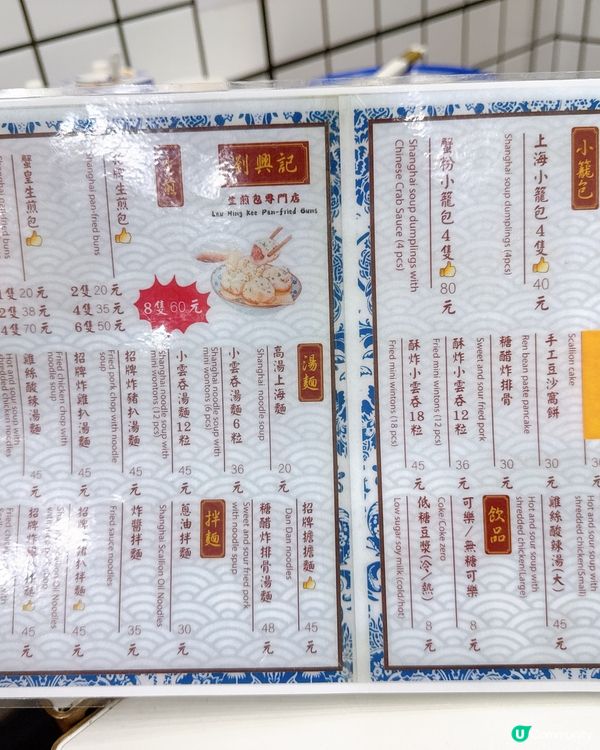 劉興記
生煎包專門店
Lau Hing Kee Pan-fried Buns
招牌生煎包
Shanghai pan-fried buns
2隻20元
4隻35元
6隻50元
8隻60元
蟹皇生煎包
2隻38元
4隻70元
湯麵
高湯上海麵
Shanghai noodle soup
20元
小雲吞湯麵6粒
Shanghai noodle soup with mini wontons (6 pcs)
36元
小雲吞湯麵12粒
Shanghai noodle soup with mini wontons (12 pcs)
45元
招牌炸豬扒湯麵
Fried pork chop with noodle soup
45元
招牌炸雞扒湯麵
Fried chicken chop with noodle soup
45元
雞絲酸辣湯麵
Hot and sour soup with shredded chicken noodles
45元
招牌擔擔麵
Dan Dan noodles
45元
糖醋炸排骨湯麵
Sweet and sour fried pork with noodle spup
48元
拌麵
蔥油拌麵
Shanghai Scallion Oil Noodles
30元
炸醬拌麵
Fried sauce noodles
35元
45元
45元
小籠包
上海小籠包4隻
Shanghai soup dumplings (4pcs)
40元
蟹粉小籠包4隻
Shanghai soup dumplings with Chinese Crab Sauce (4 pcs)
80元
Scallion cake
手工豆沙窩餅
Ren bean paste pancake
30元
糖醋炸排骨
Sweet and sour fried pork
30元
酥炸小雲吞12粒
Fried mini wintons (12 pcs)
36元
酥炸小雲吞18粒
Fried mini wintons (18 pcs)
45元
Hot and sour soup with shredded chicken(Small)
雞絲酸辣湯(大)
Hot and sour soup with shredded chicken(Large)
45元
飲品
可樂/無糖可樂
Coke/Coke zero
8元
低糖豆漿(冷/熱)
Low sugar soy milk (cold/hot)
8元
U Community